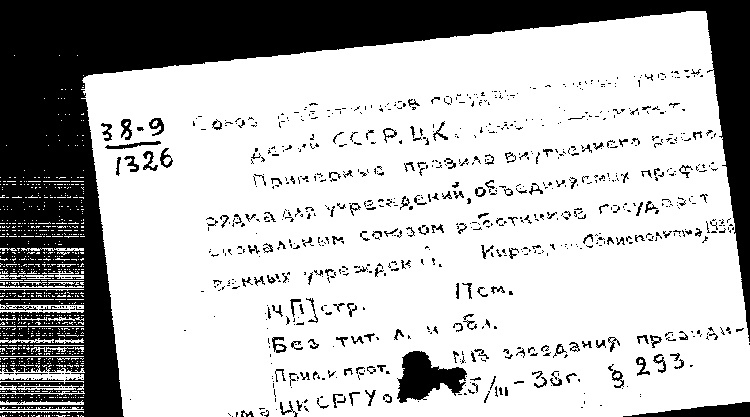 38-9
1326
Союз работников государственных учреж-
дений СССР. ЦК.
Примерные правила внутреннего распо-
рядка для учреждений, объединяемых профес-
сиональным союзом работников государст
венных учреждений. Киров, Облисполкома, 1938
14, [1] стр. 17 см.
Без тит. л. и обл.
Прил. к прот. N 13 заседания президи-
ума ЦК СРГУ 25/III-38 г. § 293.